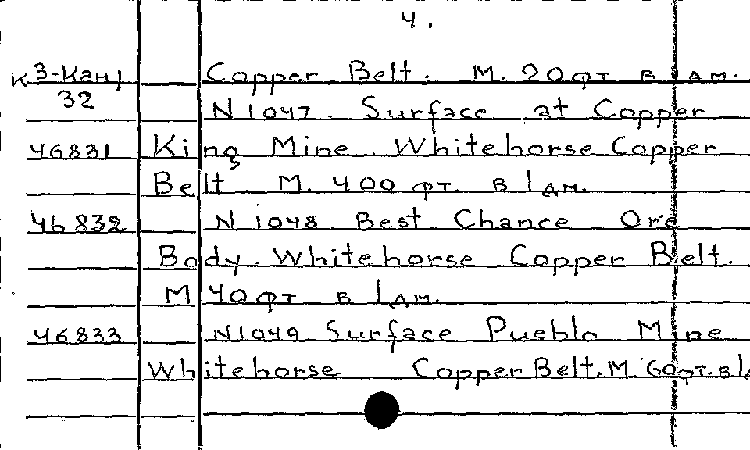 4.
К 3-Кан1 Copper Belt. М. 20 фт в 1 дм.
32 N 1047 Surface at Copper
46831 King Mine. Whitehorse Copper
Belt М. 400 фт. в 1 дм.
46832 N 1048 Best Chance Ore
Body. Whitehorse Copper Belt.
М 40 фт в 1 дм.
46833 N1049 Surface Pueblo Mine
Whitehorse Copper Belt. М. 60 фт. в 1